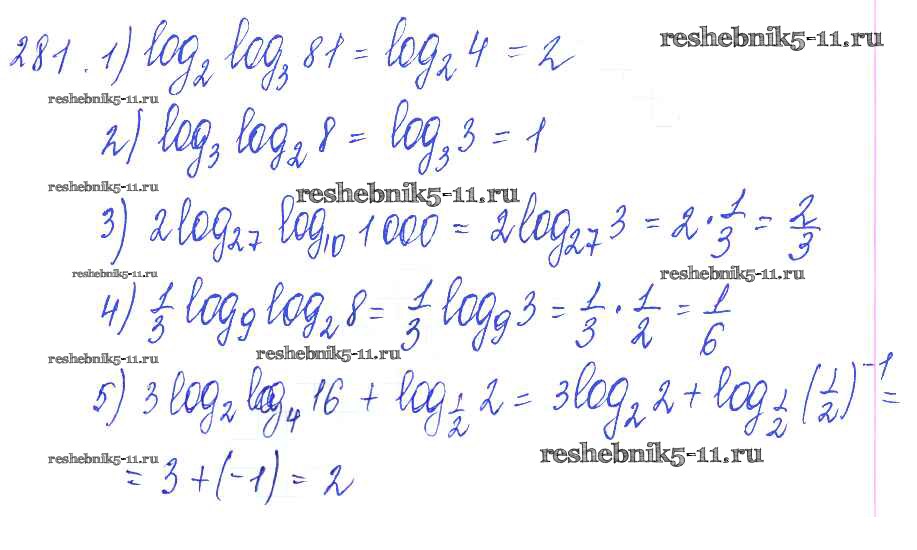 281. 1) log₂ log₃ 81 = log₂ 4 = 2
reshebnik5-11.ru
reshebnik5-11.ru
2) log₃ log₂ 8 = log₃ 3 = 1
reshebnik5-11.ru
reshebnik5-11.ru
3) 2 log₂₇ log₁₀ 1000 = 2 log₂₇ 3 = 2 · 1/3 = 2/3
reshebnik5-11.ru
reshebnik5-11.ru
4) 1/3 log₉ log₂ 8 = 1/3 log₉ 3 = 1/3 · 1/2 = 1/6
reshebnik5-11.ru
reshebnik5-11.ru
5) 3 log₂ log₄ 16 + log_{1/2} 2 = 3 log₂ 2 + log_{1/2} (1/2)⁻¹ =
reshebnik5-11.ru
reshebnik5-11.ru
= 3 + (-1) = 2